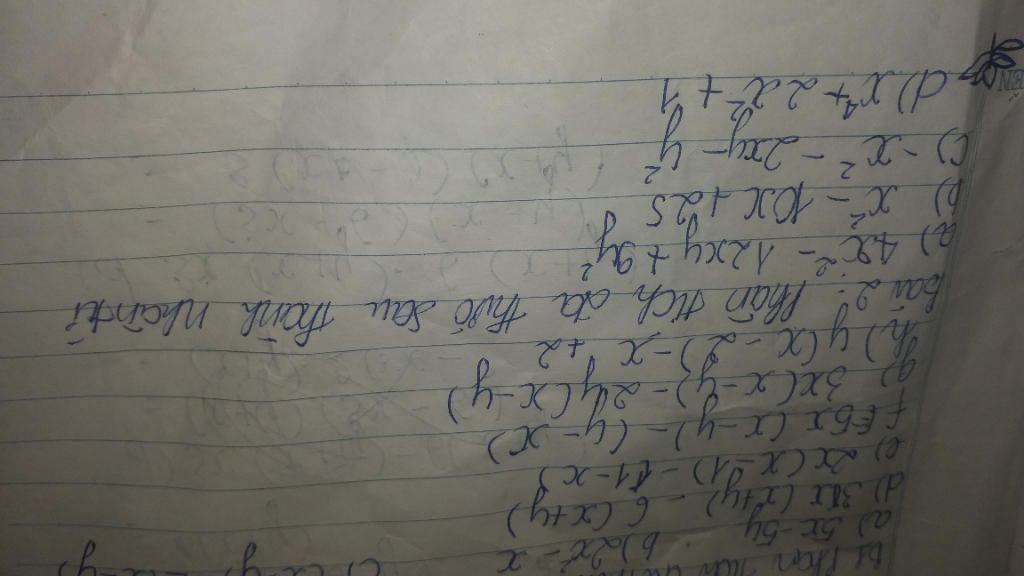 b1 Phân
a) 5x-5y b) 2x² - x c) (x-y) - (x-y)
d) 3x(x+y) - 6(x+y)
e) 2x(x-1) - (1-x)
f) 5x(x-y) - (y-x)
g) 3x(x-y) - 2y(x-y)
h) y(x-2) - x + 2
Bài 2: Phân tích đa thức sau thành nhân tử
a) 4x² - 12xy + 9y²
b) x² - 10x + 25
c) -x² - 2xy - y²
d) x⁴ + 2x² + 1